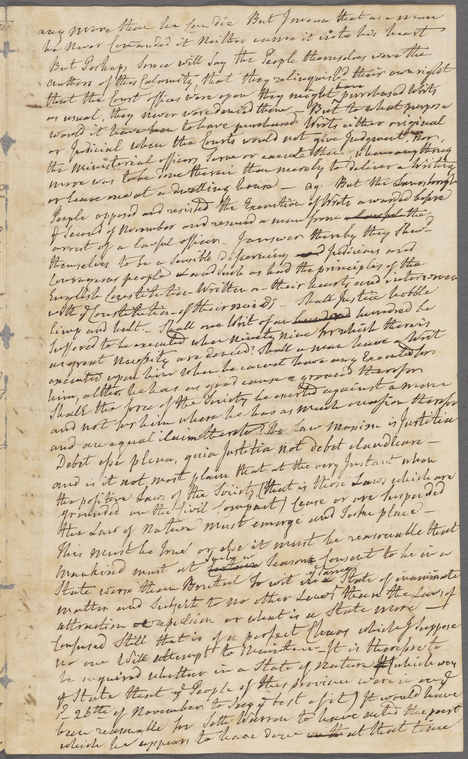 any more than he
he Never Consented it Neither came it into his heart
But Perhaps Some will say the People themselves were the
authors of this Calamity, that they relinquished their own right
that the Court offices were open they might have purchased Writs
as usual, they never were denied them — But to what purpose
would it have been to have purchased Writs either original
or Judicial when the Courts would not give Judgment, Nor
the Ministerial officers Serve or execute them,
more was to be done therein than merely to deliver a Writing
or leave one at a dwelling house — But the
People opposed and resisted the Execution of Writs awarded before
of November and rescued a man from the
arrest of a lawful officer. I answer thereby they shew
themselves to be a Sensible discerning and Judicious and
Couragious people and such as had the principles of the
English Constitution Written on their hearts and interwoven
with the Constitution of their minds — Shall Justice hobble
limp and halt — Shall one Writ of an hundred be
Suffered to be executed when Ninety nine for which there is
as great Necessity are denied? Shall a man have a Writ
executed upon him when he cannot have any Executed for
him, altho he has as good cause & ground therefor
Shall the force of the Society be exerted against a man
and not for him where he has as much occasion therefor
and an equal Claim thereto? The Law Maxim is Justitia
Debet esse plena, quia Justitia non debet claudicare —
and is it not most plain that at the very Instant when
the positive Laws of the Society (that is those Laws which are
grounded on the Civil Compact) Cease or are Suspended
the Law of Nature must emerge and take place —
This must be true or else it must be reasonable that
Mankind must at Such Seasons Consent to be in a
State worse than Brutal to wit in a State of inanimate
matter and Subject to no other Laws than the Laws of
attraction & repulsion or what is a State more
Confused Still that is of a perfect Chaos which I suppose
no one Will attempt to Maintain — It is therefore to
be inquired whether in a State of Nature (which was
the State that the People of this province were in on the
26th of November to say the best of it) It would have
been reasonable for Sett Warren to have acted the part
which he appears to have done at that time